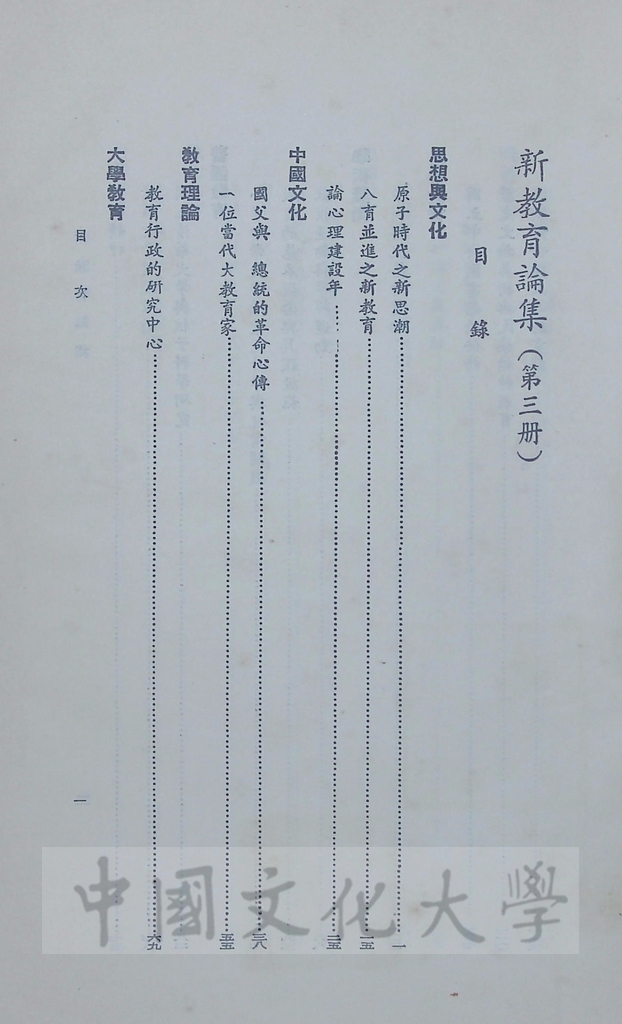 新教育論集（第三册）
目錄
思想與文化
原子時代之新思潮……一
八育並進之新教育……一五
論心理建設年……二五
中國文化
國父與　總統的革命心傳……三八
一位當代大教育家……五五
教育理論
教育行政的研究中心……六九
大學教育
目次
一
中國文化大學